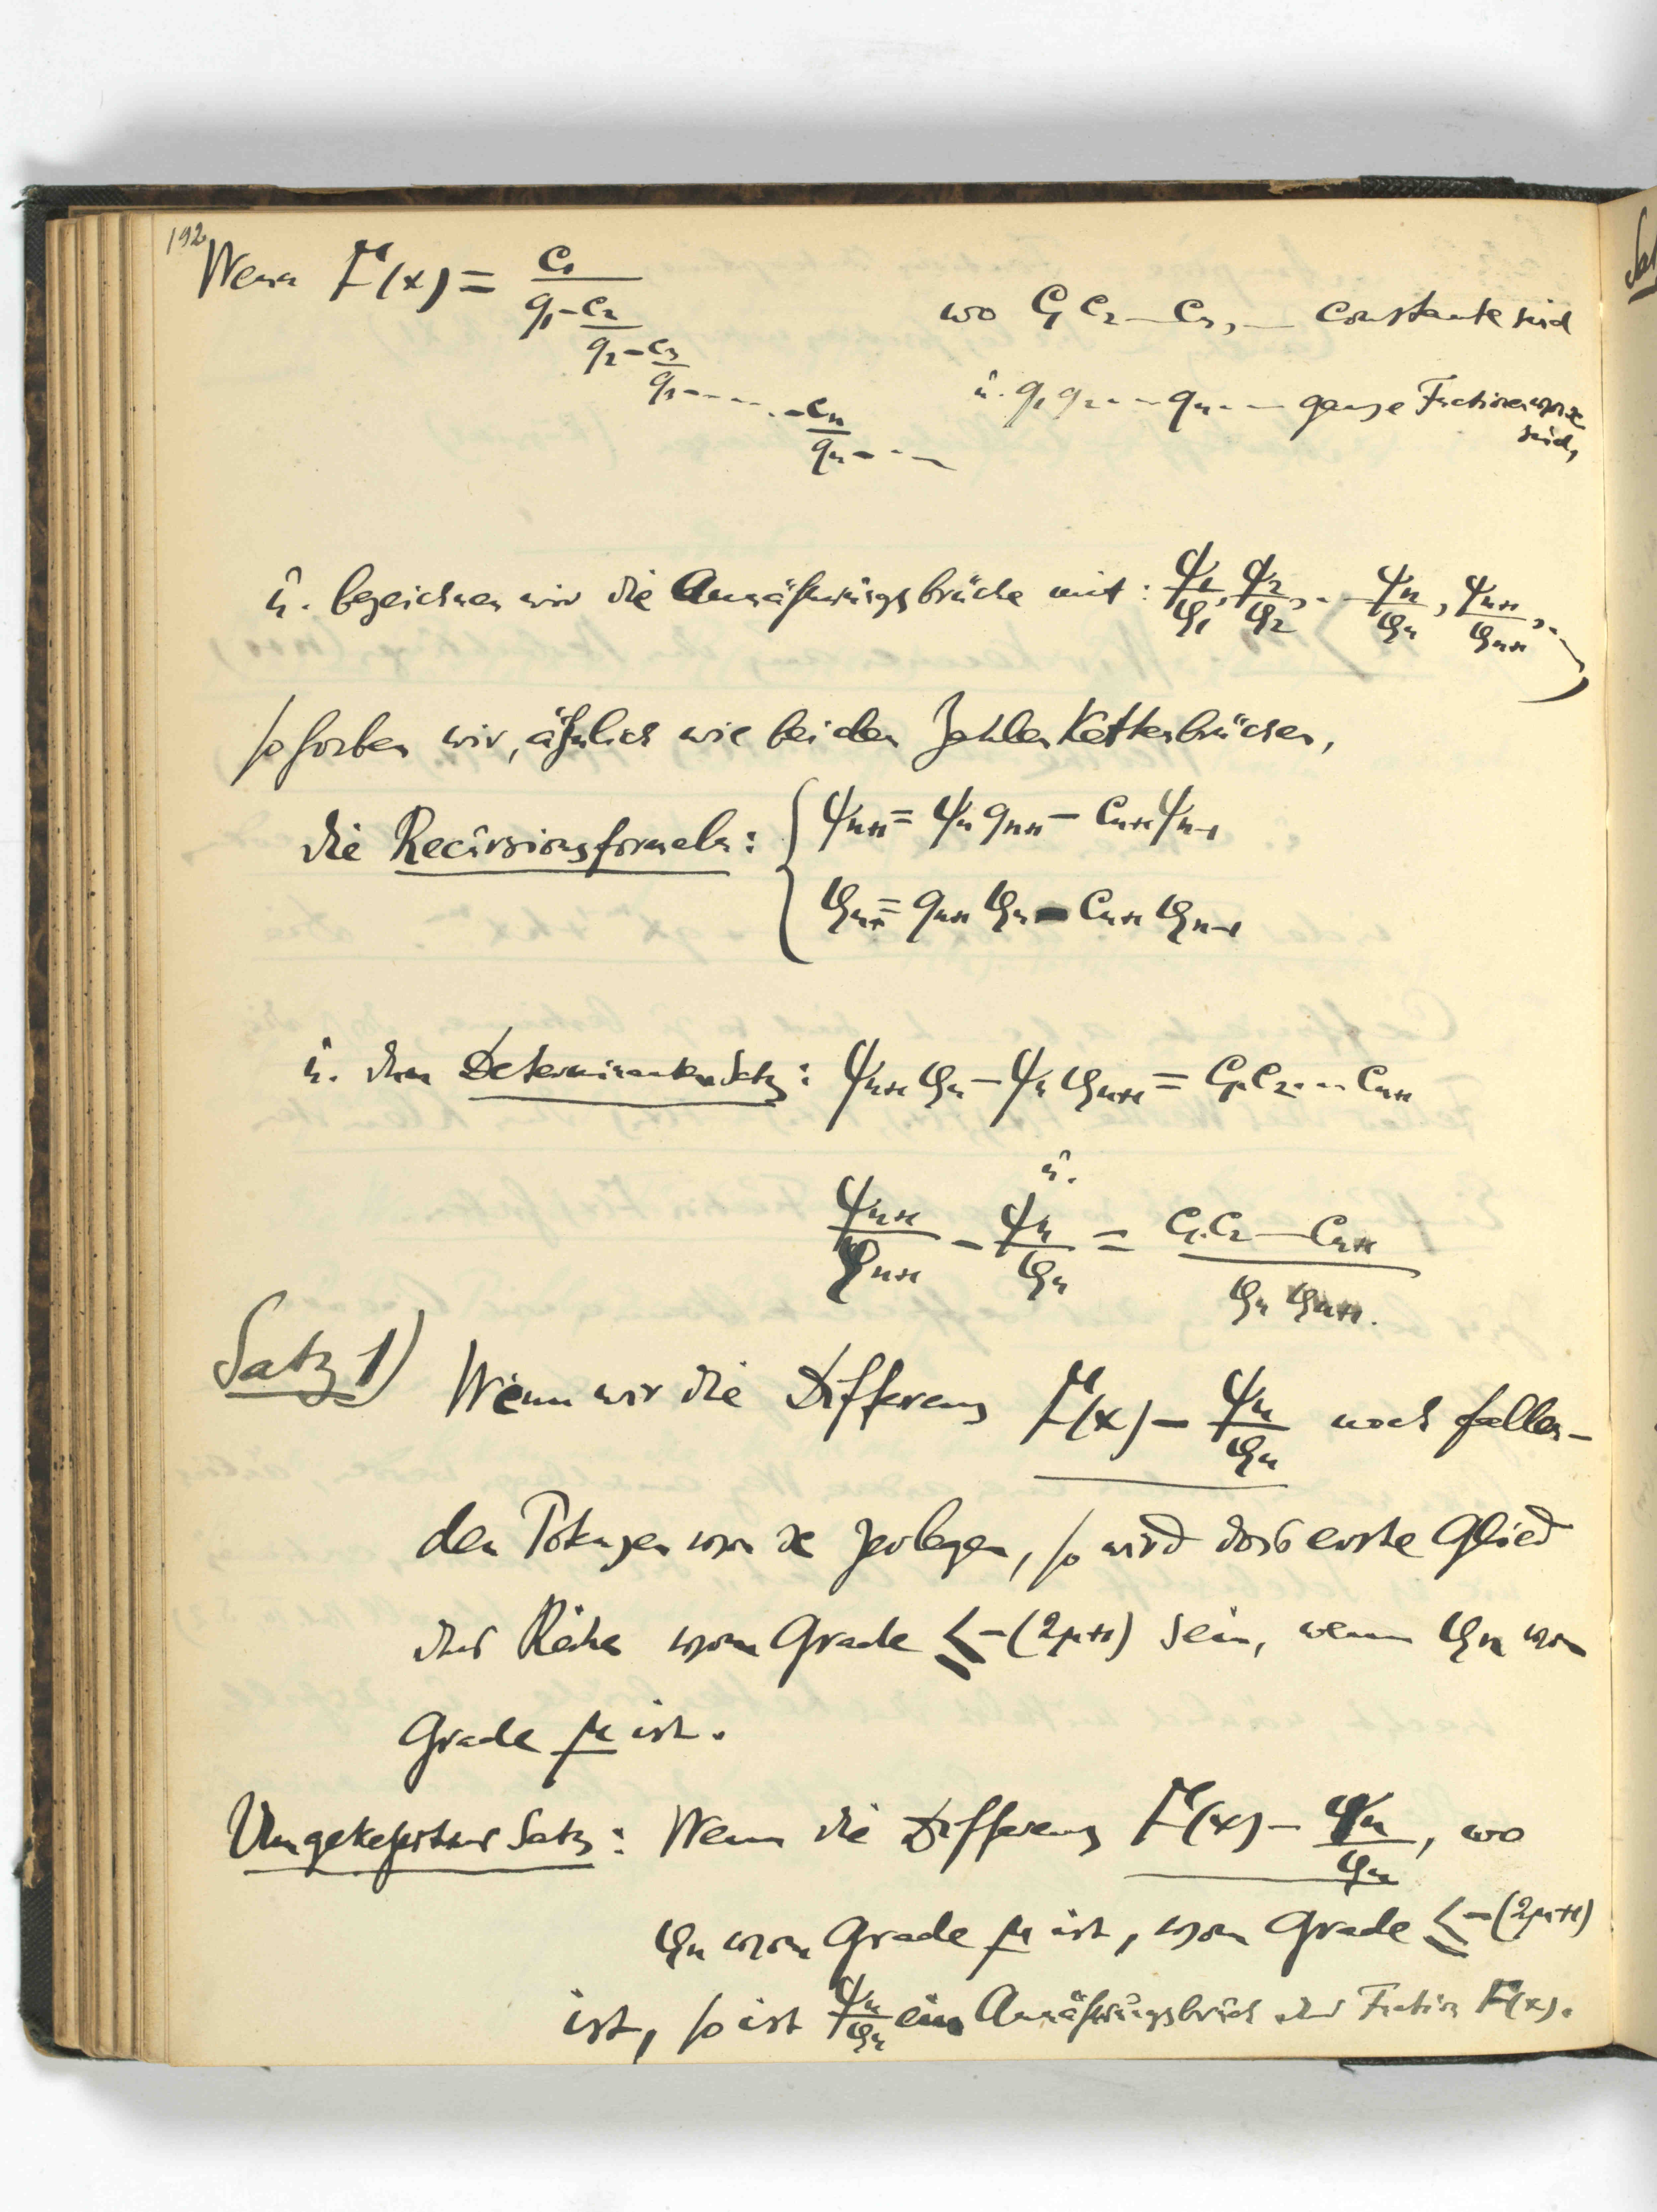 192
Wenn F(x) = c₁/(q₁ - c₂/(q₂ - c₃/(q₃ - .... - cₙ/(qₙ - ...
wo c₁ c₂ — cₙ, — constante sind
u. q₁ q₂ ... qₙ ... ganze Functionen von x
sind,
u. bezeichnen wir die Annäherungsbrüche mit: ψ₁/φ₁, ψ₂/φ₂, ... ψₙ/φₙ, ψₙ₊₁/φₙ₊₁, ...)
so haben wir, ähnlich wie bei den Zahlenkettenbrüchen,
die Recursionsformeln: { ψₙ₊₁ = ψₙ qₙ₊₁ - cₙ₊₁ ψₙ₋₁
φₙ₊₁ = qₙ₊₁ φₙ - cₙ₊₁ φₙ₋₁
u. den Determinantensatz: ψₙ₊₁ φₙ - ψₙ φₙ₊₁ = c₁ c₂ ... cₙ₊₁
u.
ψₙ₊₁/φₙ₊₁ - ψₙ/φₙ = c₁ c₂ — cₙ₊₁ / φₙ φₙ₊₁.
Satz 1) Wenn wir die Differenz F(x) - ψₙ/φₙ nach fallen-
den Potenzen von x zerlegen, so wird das erste Glied
der Reihe vom Grade ≤ -(2μ+1) sein, wenn φₙ vom
Grade μ ist.
Umgekehrter Satz: Wenn die Differenz F(x) - ψₙ/φₙ, wo
φₙ vom Grade μ ist, vom Grade ≤ -(2μ+1)
ist, so ist ψₙ/φₙ ein Annäherungsbruch der Function F(x).